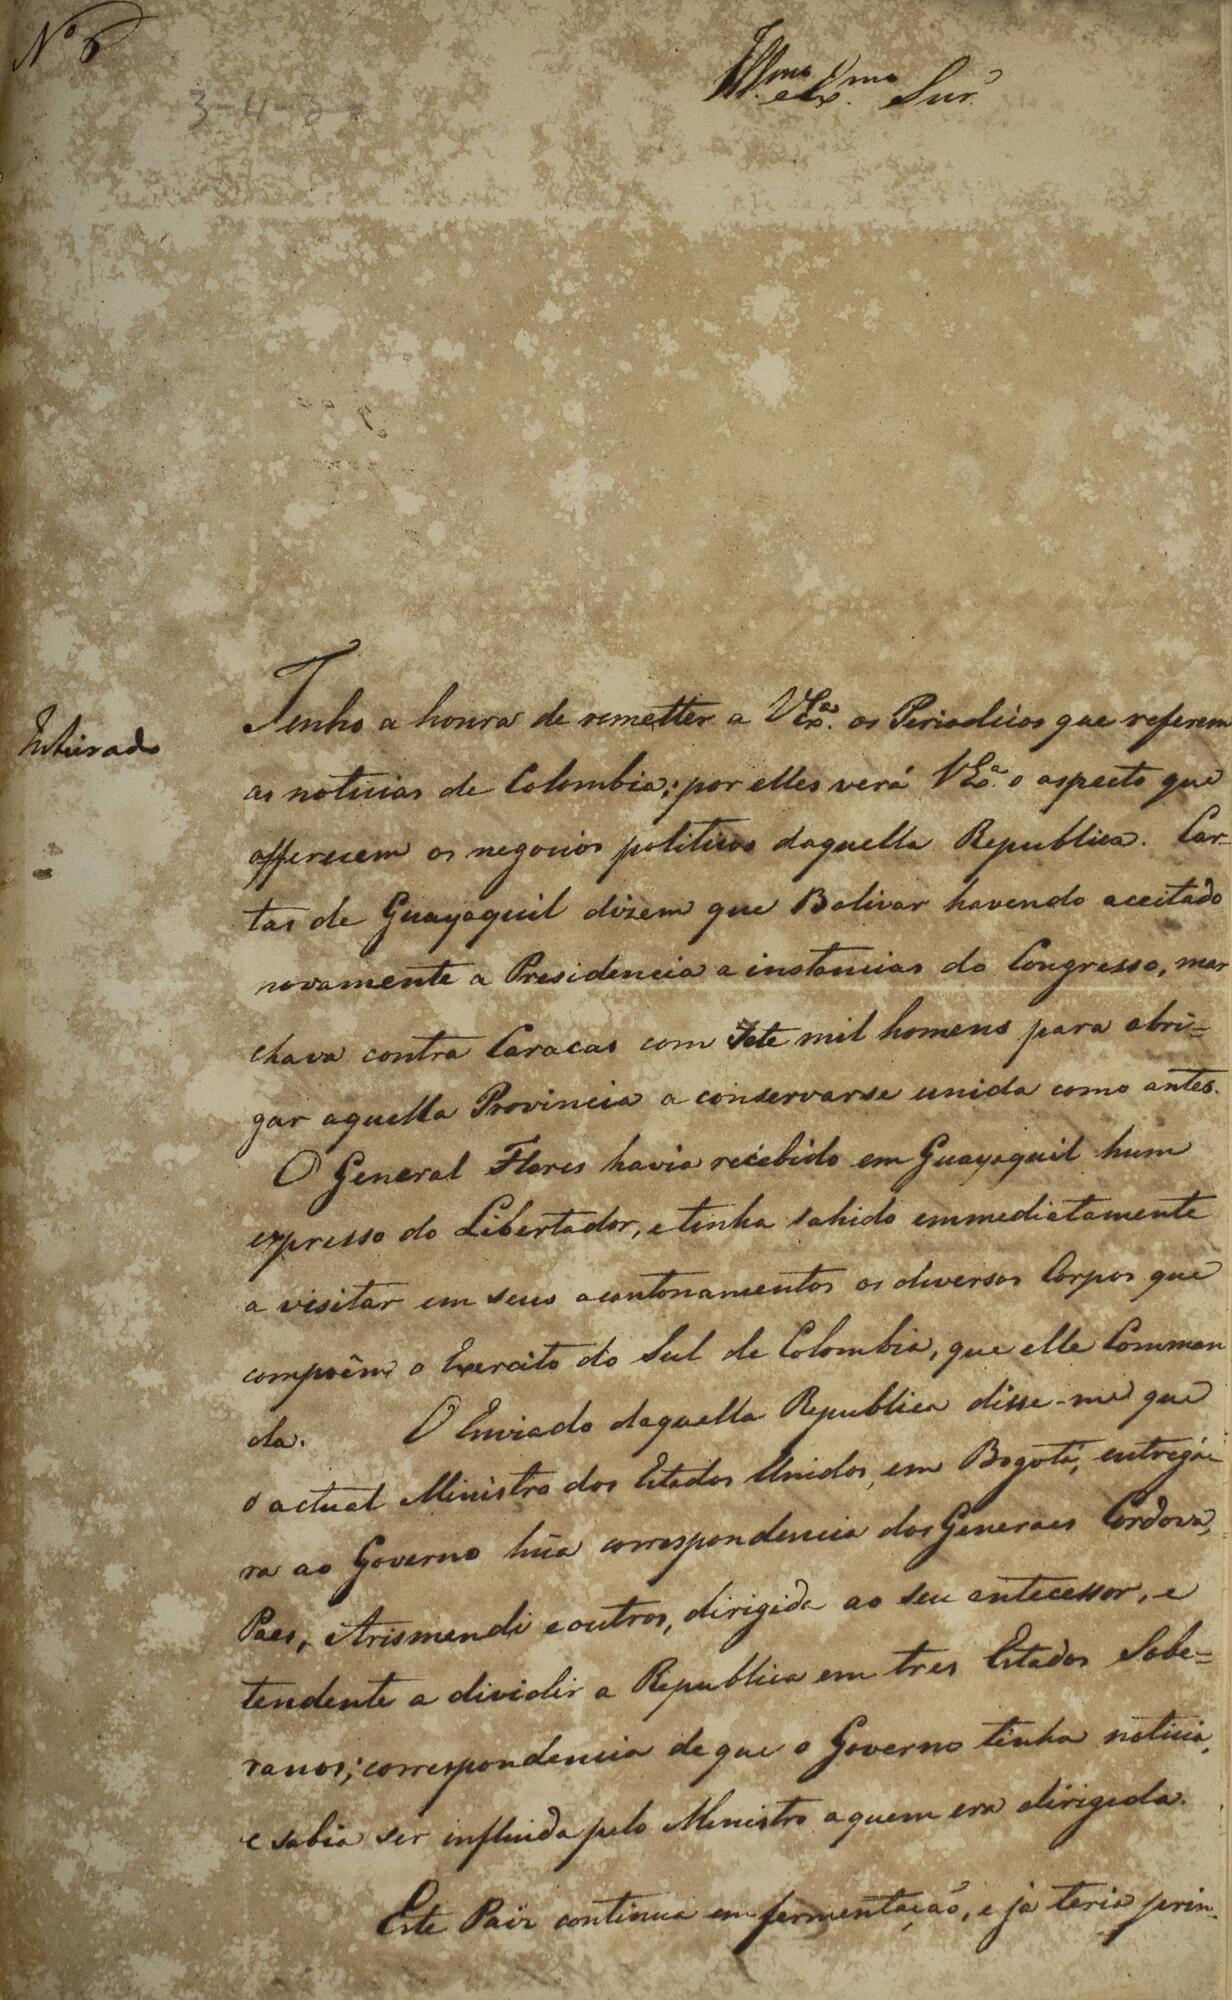 Nº 6
Illmo e Exmo Snr.
3-4-3
Inteirado
Tenho a honra de remetter a V Exa. os Periodicos que referem
as noticias de Colombia; por elles verá V Exa. o aspecto que
offerecem os negocios politicos daquella Republica. Car-
tas de Guayaquil dizem que Bolivar havendo aceitado
novamente a Presidencia a instancias do Congresso, mar
chava contra Caracas com sete mil homens para obri=
gar aquella Provincia a conservarse unida como antes.
O General Flores havia recebido em Guayaquil hum
expresso do Libertador, e tinha sahido emmediatamente
a visitar em seus acantonamentos os diversos Corpos que
compoêm o Exercito do Sul de Colombia, que elle Comman
da. O Enviado daquella Republica disse-me que
o actual Ministro dos Estados Unidos, em Bogotá, entregá-
ra ao Governo hũa correspondencia dos Generaes Cordova,
Paes, Arismendi e outros, dirigida ao seu antecessor, e
tendente a dividir a Republica em tres Estados Sobe=
ranos; correspondencia de que o Governo tinha noticia,
e sabia ser influida pelo Ministro a quem era dirigida.
Este Paiz continua em fermentação, e já teria prin-